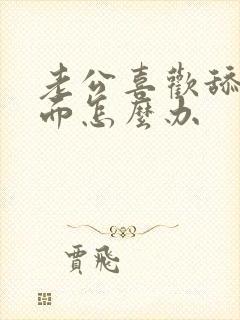 老公喜歡舔
而怎麼办
賈飛